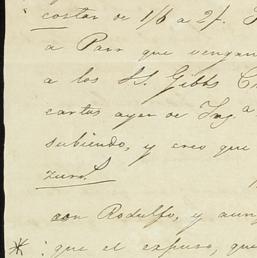 costar de 1/6 a 2/.
a Parr que vengan
a los SS. Gibbs
cartas ayer de Ing.a
subiendo, y creo que
con Rodulfo, y aun
que el expuso, que